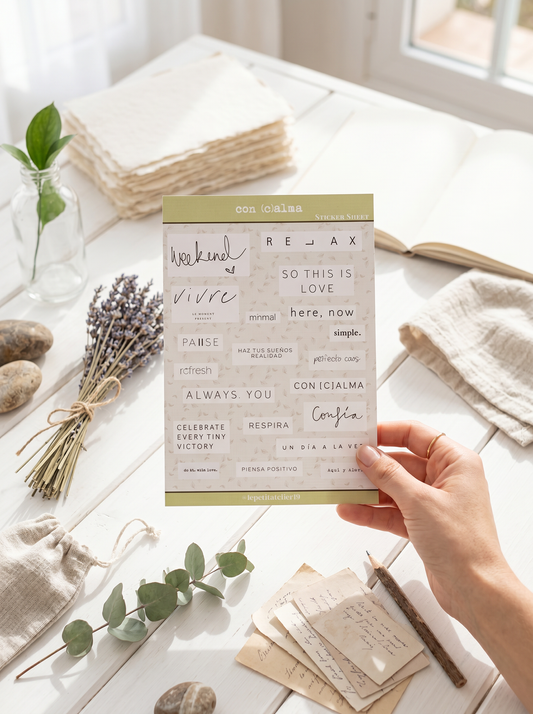 con (c)alma
STICKER SHEET
weekend
RELAX
SO THIS IS
LOVE
vivre
LE MOMENT
PRESENT
minimal
here, now
simple.
PAUSE
HAZ TUS SUEÑOS
REALIDAD
perfecto caos
refresh
CON [C]ALMA
ALWAYS. YOU
Confía
CELEBRATE
EVERY TINY
VICTORY
RESPIRA
UN DÍA A LA VEZ
do it, with love.
PIENSA POSITIVO
Aquí y